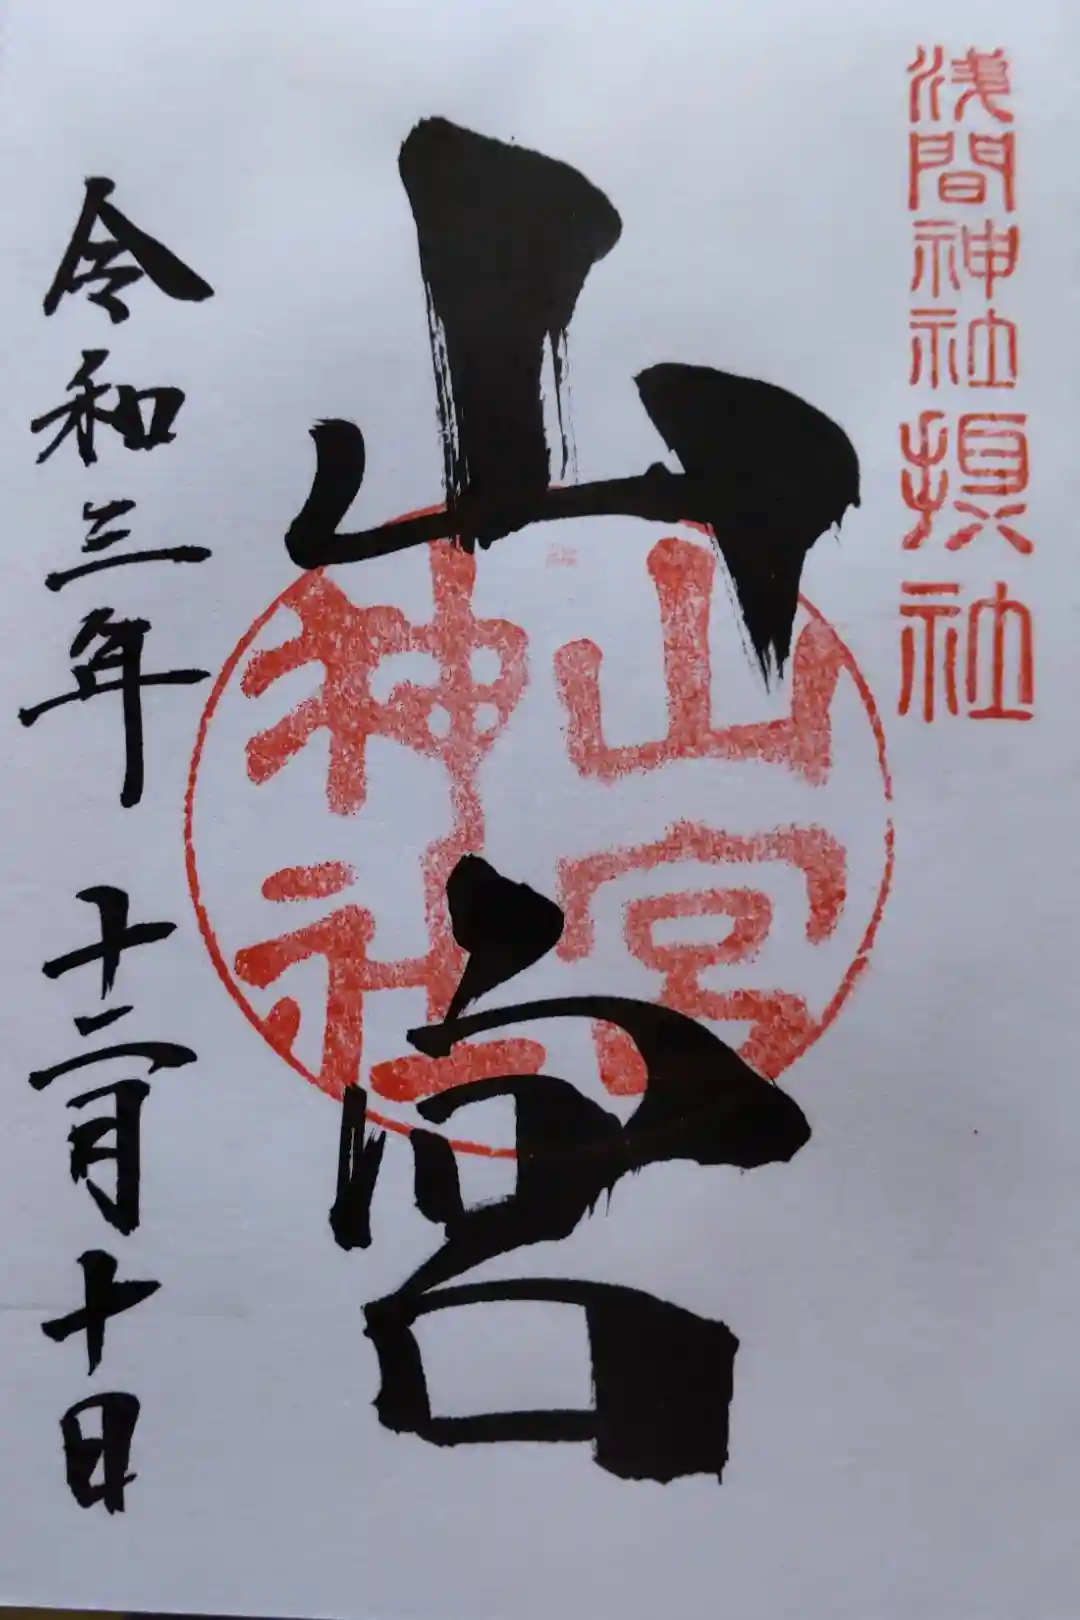 浅間神社摂社
山宮
山宮
神社
令和三年 十二月十日